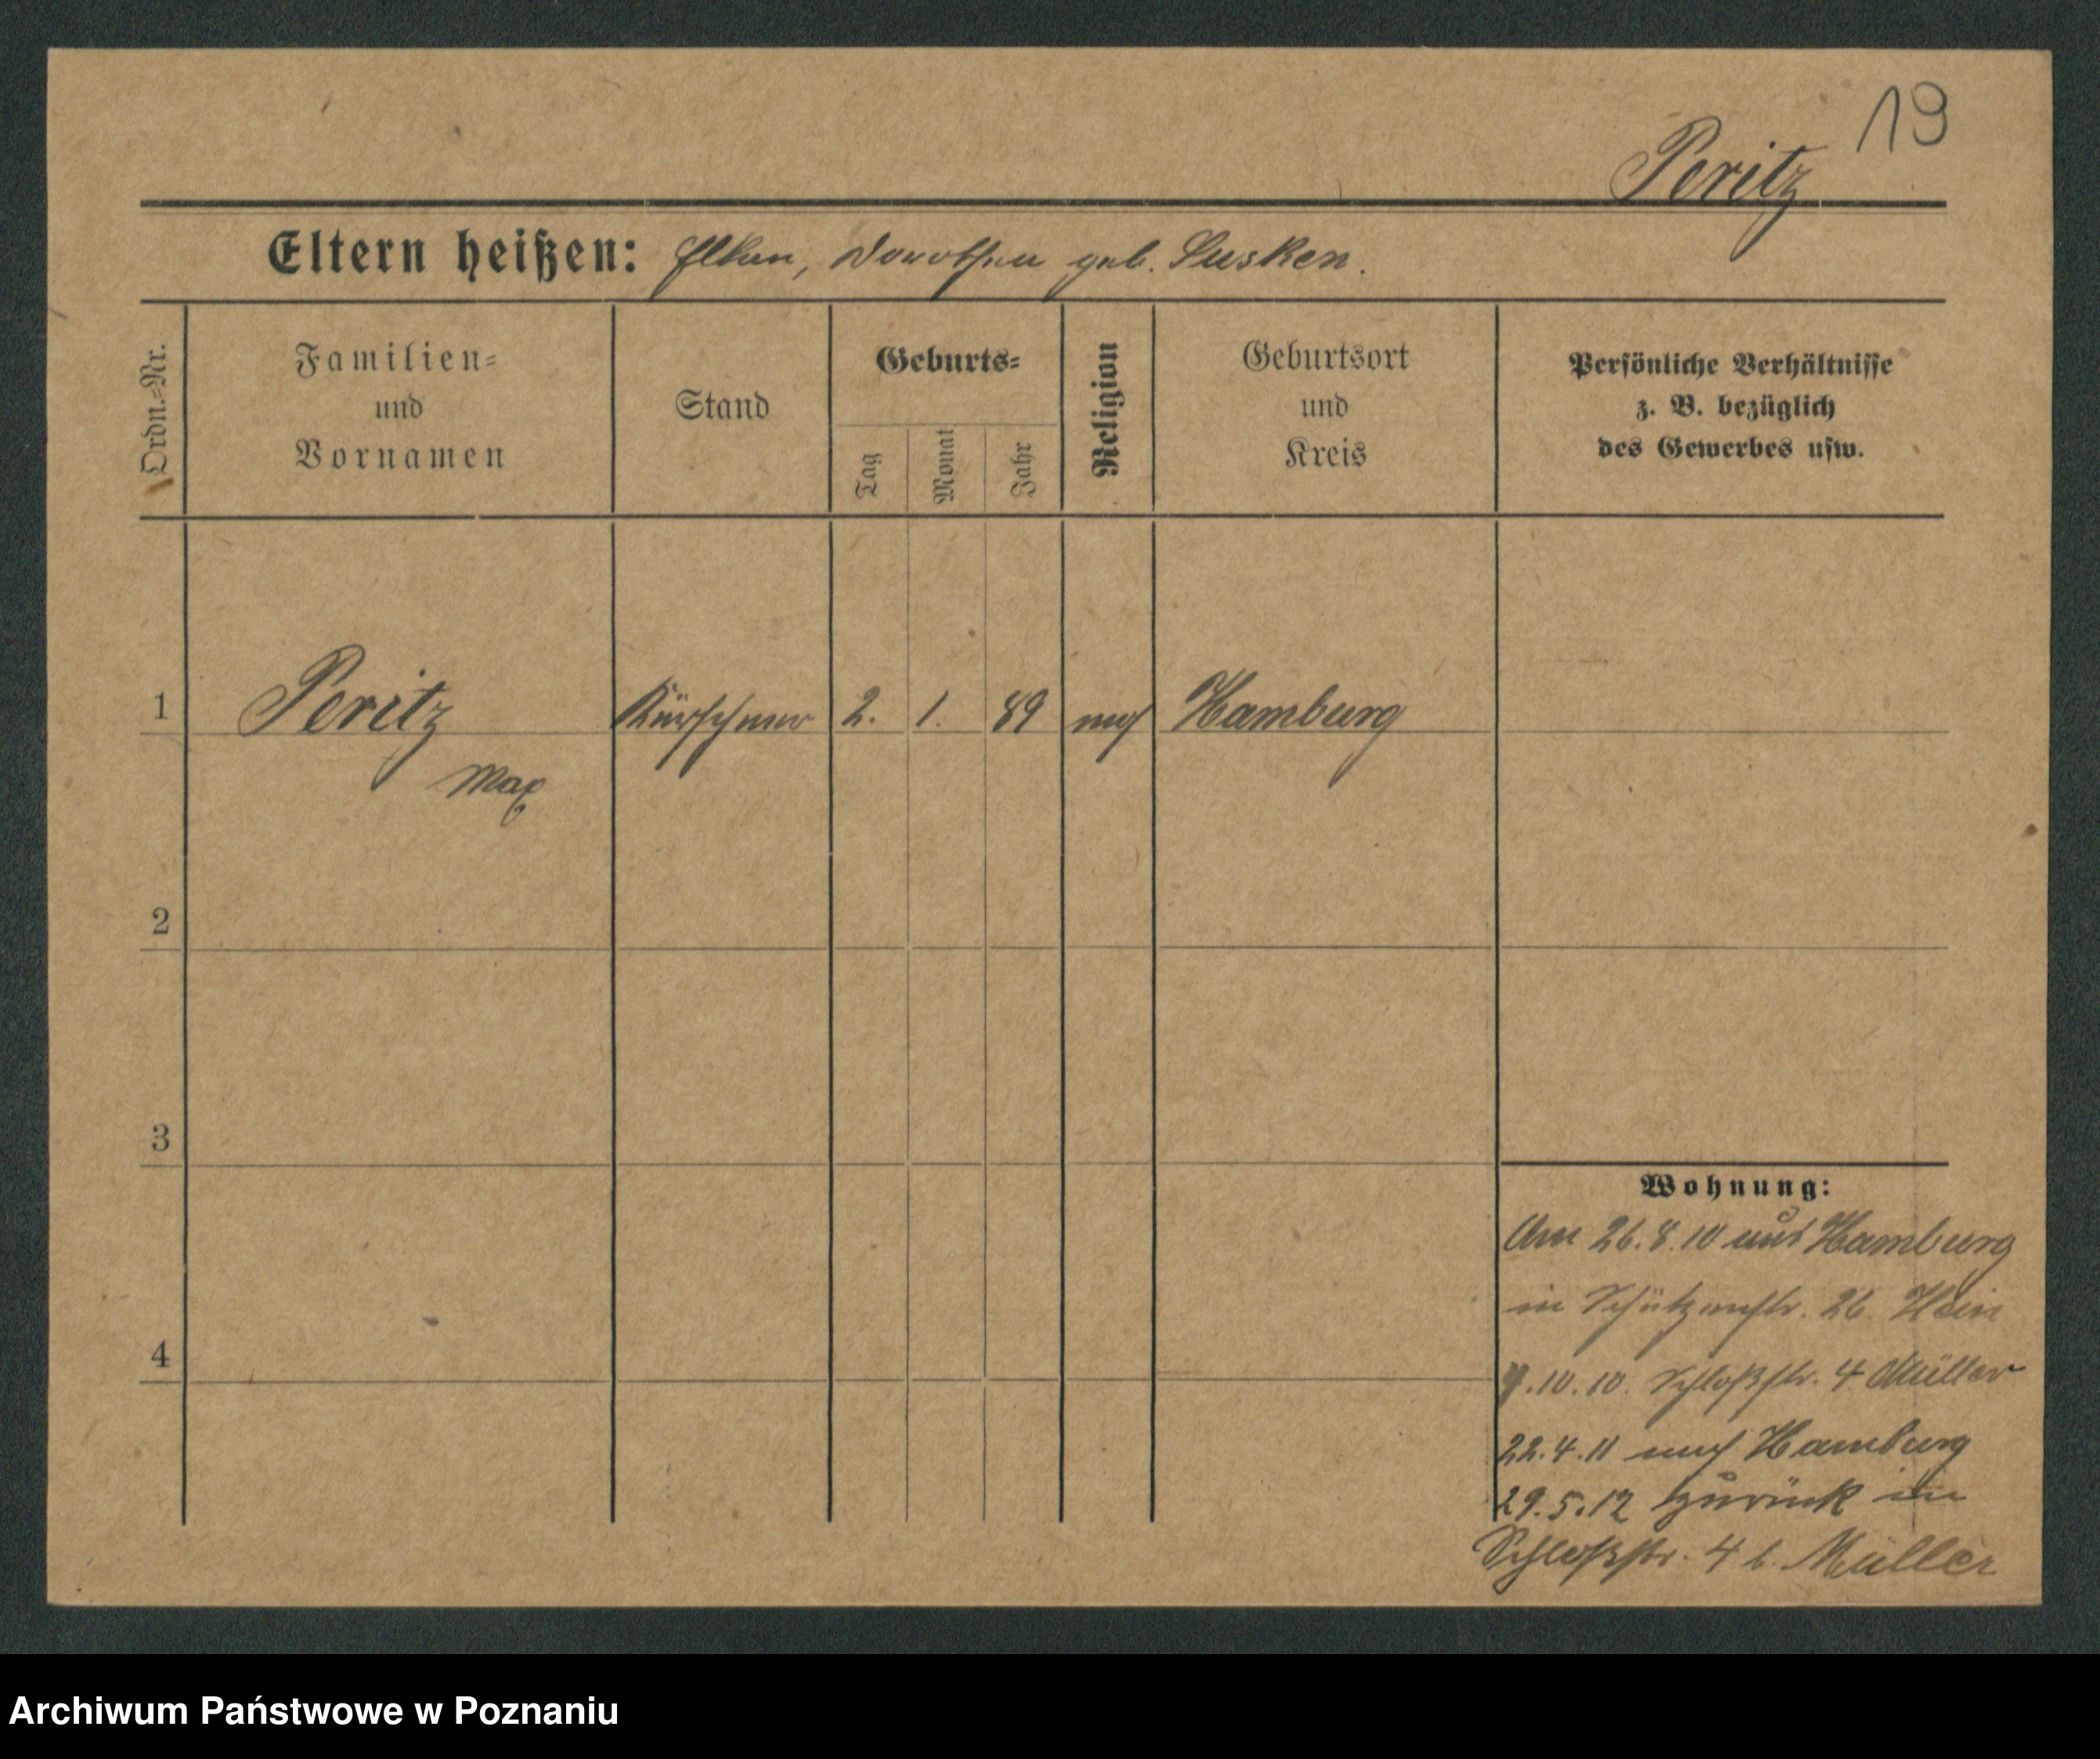 19
Peritz
Eltern heißen: Elkan, Dorothea geb. Susken.
Ordn.-Nr.
Familien-
und
Vornamen
Stand
Geburts-
Tag
Monat
Jahr
Religion
Geburtsort
und
Kreis
Persönliche Verhältnisse
z. B. bezüglich
des Gewerbes usw.
1 Peritz Kürschner 2. 1. 89 Hamburg
Max
2
3
4
Wohnung:
Am 26.8.10 aus Hamburg
in Schützenstr. 26.
.10.10. Schloßstr. 4 Müller
22.4.11 nach Hamburg
29.5.12 zurück in
Schloßstr. 4 b. Müller
Archiwum Państwowe w Poznaniu